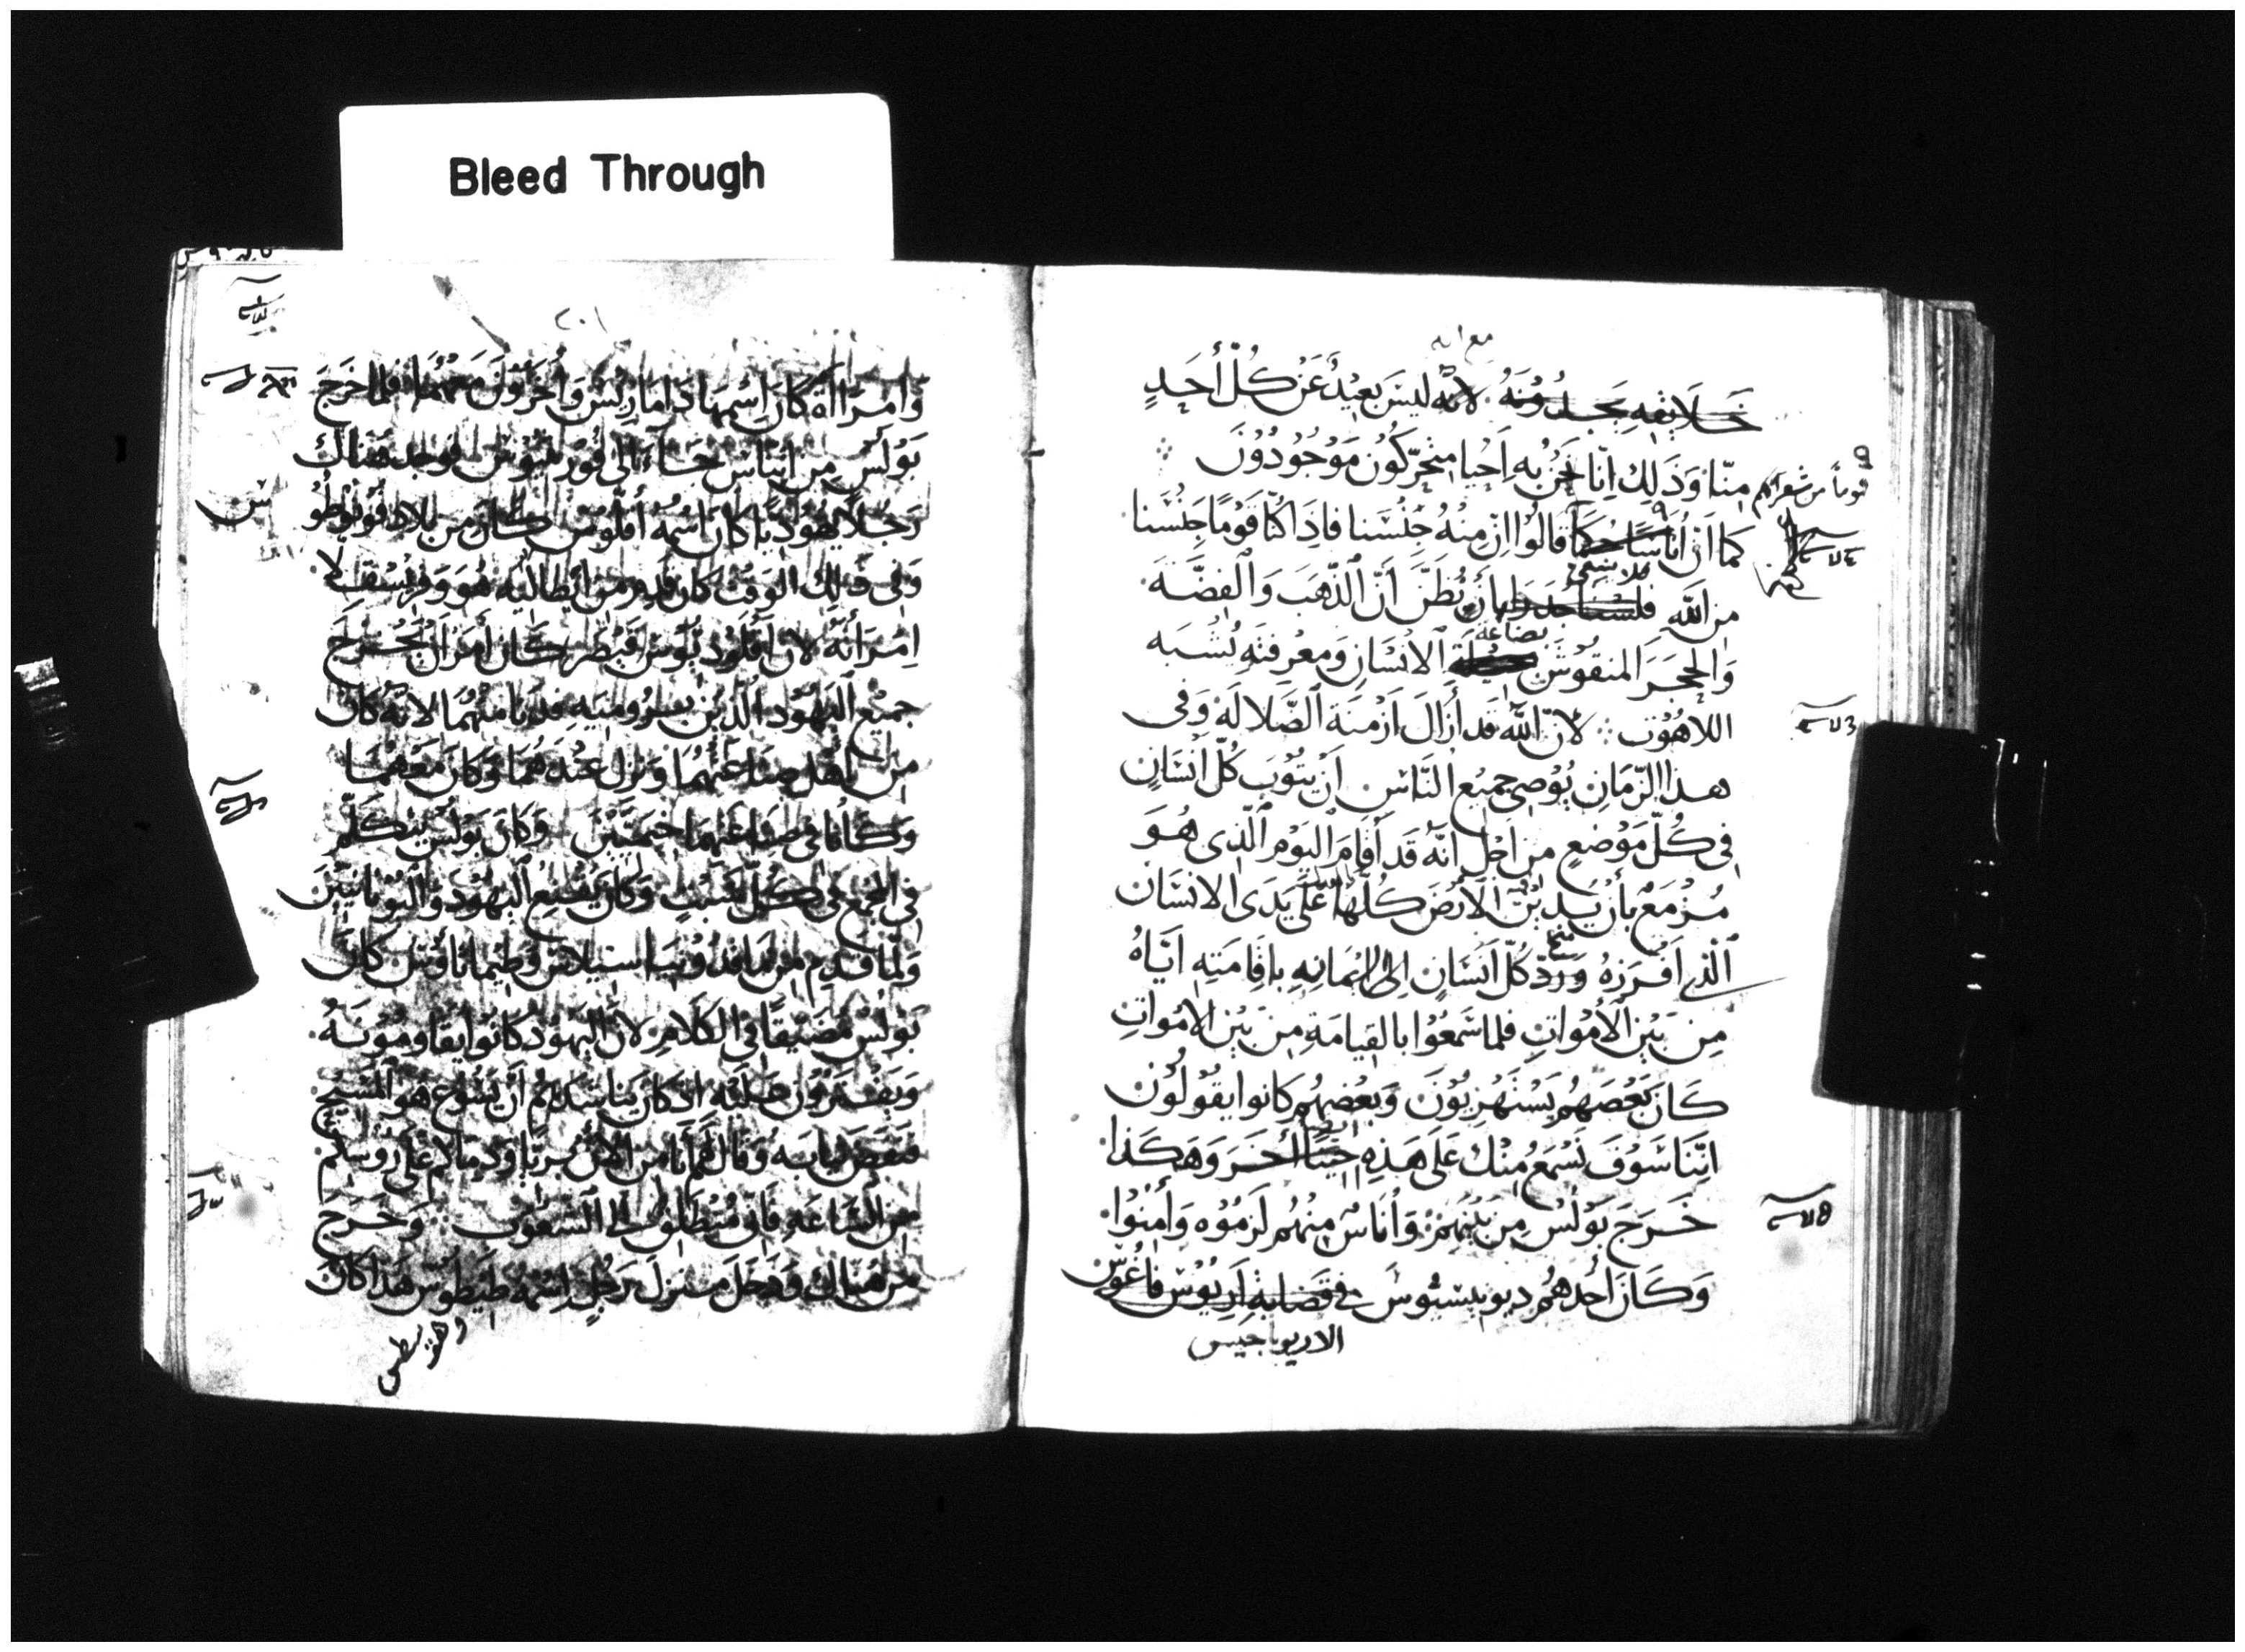 Bleed Through
مع انه
خَلايقه يَجدُونَهُ لانّه ليسَ بعيْدٌ عَن كُلّ أحَدٍ
منّا وَذَلِك اِنّا نَحنُ به اَحيا متحرّكُون مَوْجُودُوْنَ
قوماً من شعرايكم
كما ان أُناسًا حُكماً قالوُا اِن مِنهُ جنْسَنا فاذَا كنّا قوْمًا جنْسنا
فلا ينبغي
من الله فلسنا جدرا بأن نُظنّ أنّ الذّهبَ وَالفضّة
بضاعة
وَالحجَرَ المنقوُشَ الانْسَان وَمَعرفته يُشبه
اللاهُوت لانّ اللّه قد أزالَ اَزْمنَة الضّلالَة وَفي
هذا الزّمان يُوْصى جميع النّاس اَنْ يتوُب كلّ انْسَانٍ
في كُلّ مَوْضع من اَجْل انّه قد أقامَ اليَوْم الّذى هُوَ
مُزْمَعٌ بأن يدينْ الأرْض كلّها على يَدَى الانسَان
الّذي اَفرزهُ وَردّ كلّ اَنسَان الى ايمانهِ باقامَته ايّاهُ
مِن بَيْن الأمْوات فلما سَمعُوْا بالقيامَة مِن بَيْن الامْواتِ
كَان بَعْضهُم يَسْتهْزيُوْنَ وَبعْضهُم كانوا يقُولُوْن
انّنا سَوْفَ نَسْمَعُ مِنْكَ عَلَى هَذِهِ حينًا اُخَرَ وَهَكذا
خَرجَ بَوْلُسْ مِن بَيْنِهِمْ وَاُناسٌ مِنْهُم لزمُوْه وَآمنُوْا
وَكَانَ أحدهُم ديونيسيُوسَ في قضاية اَريُوْس فاغوُس
الاريوباجيس
٢٠١
وَامْرَاأة كَان اِسْمهَا دَامَاريْس وَاُخَروْنَ مَعهُمَا فلما خَرَجَ
بَوْلُس مِن اثيناس جَاء الى قورنثيوُس فوجد هُناك
رَجُلاً يَهُوْديًا كَان اسْمهُ اَقلّوس كَان من بلاد فونطوُ
وَفي ذلك الوَقت كان قدم من ايْطاليَه هُوَ وَفريسْقلا
اِمْرَأتهُ لان اَقلوْديُوْس قيْصَر كَان أمَرَ اَنْ يَخْرُجَ
جميْع اليَهُوْد الّذيْن بروُمِيَه فدنا منْهُمَا لانّه كان
من اَهْل صِنَاعتهمَا وَنزل عنْدهُمَا وَكان مَعَهمَا
وَكَانا في صناعتهمَا خيميّيْن وَكان بَوْلُس يتكلّم
في المجمع في كُلّ سَبْتٍ وَكان يُقنِع اليَهُوْد وَاليُونانيّيْن
وَلمّا قدم من ماقدونيَه اسيلاس وَطيماثاوُس كان
بَوْلُس مُضَيقًا في الكَلام لان اليَهُوْد كانوا يقاومُونهُ
وَيفْترُوْن عَليْه اذ كان يناشدهُم أنْ يَسُوْع هو المسِيْح
فنفض ثيابه وَقال لهُم أنا من الان بريّا وَدمَاكم على رُوسِكُم
من السّاعَه فاني منطلق الى الشعُوْب وَخرَجَ
من هُناك وَدخل منزلَ رَجُلٍ اسْمهُ طيطوُس هَذا كان